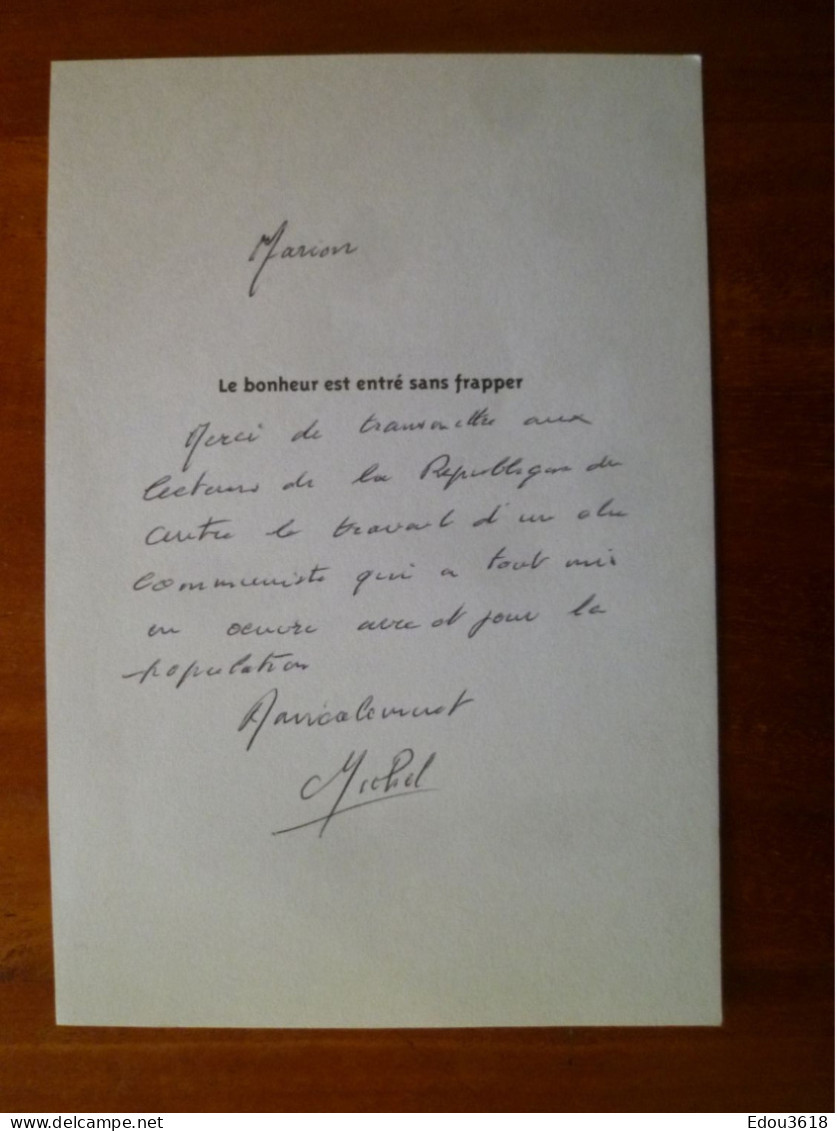 Marion
Le bonheur est entré sans frapper
Merci de transmettre aux
lecteurs de la République du
Centre le travail d'un élu
communiste qui a tout mis
en oeuvre avec et pour la
population
Amicalement
Michel
delcampe.net
Edou3618